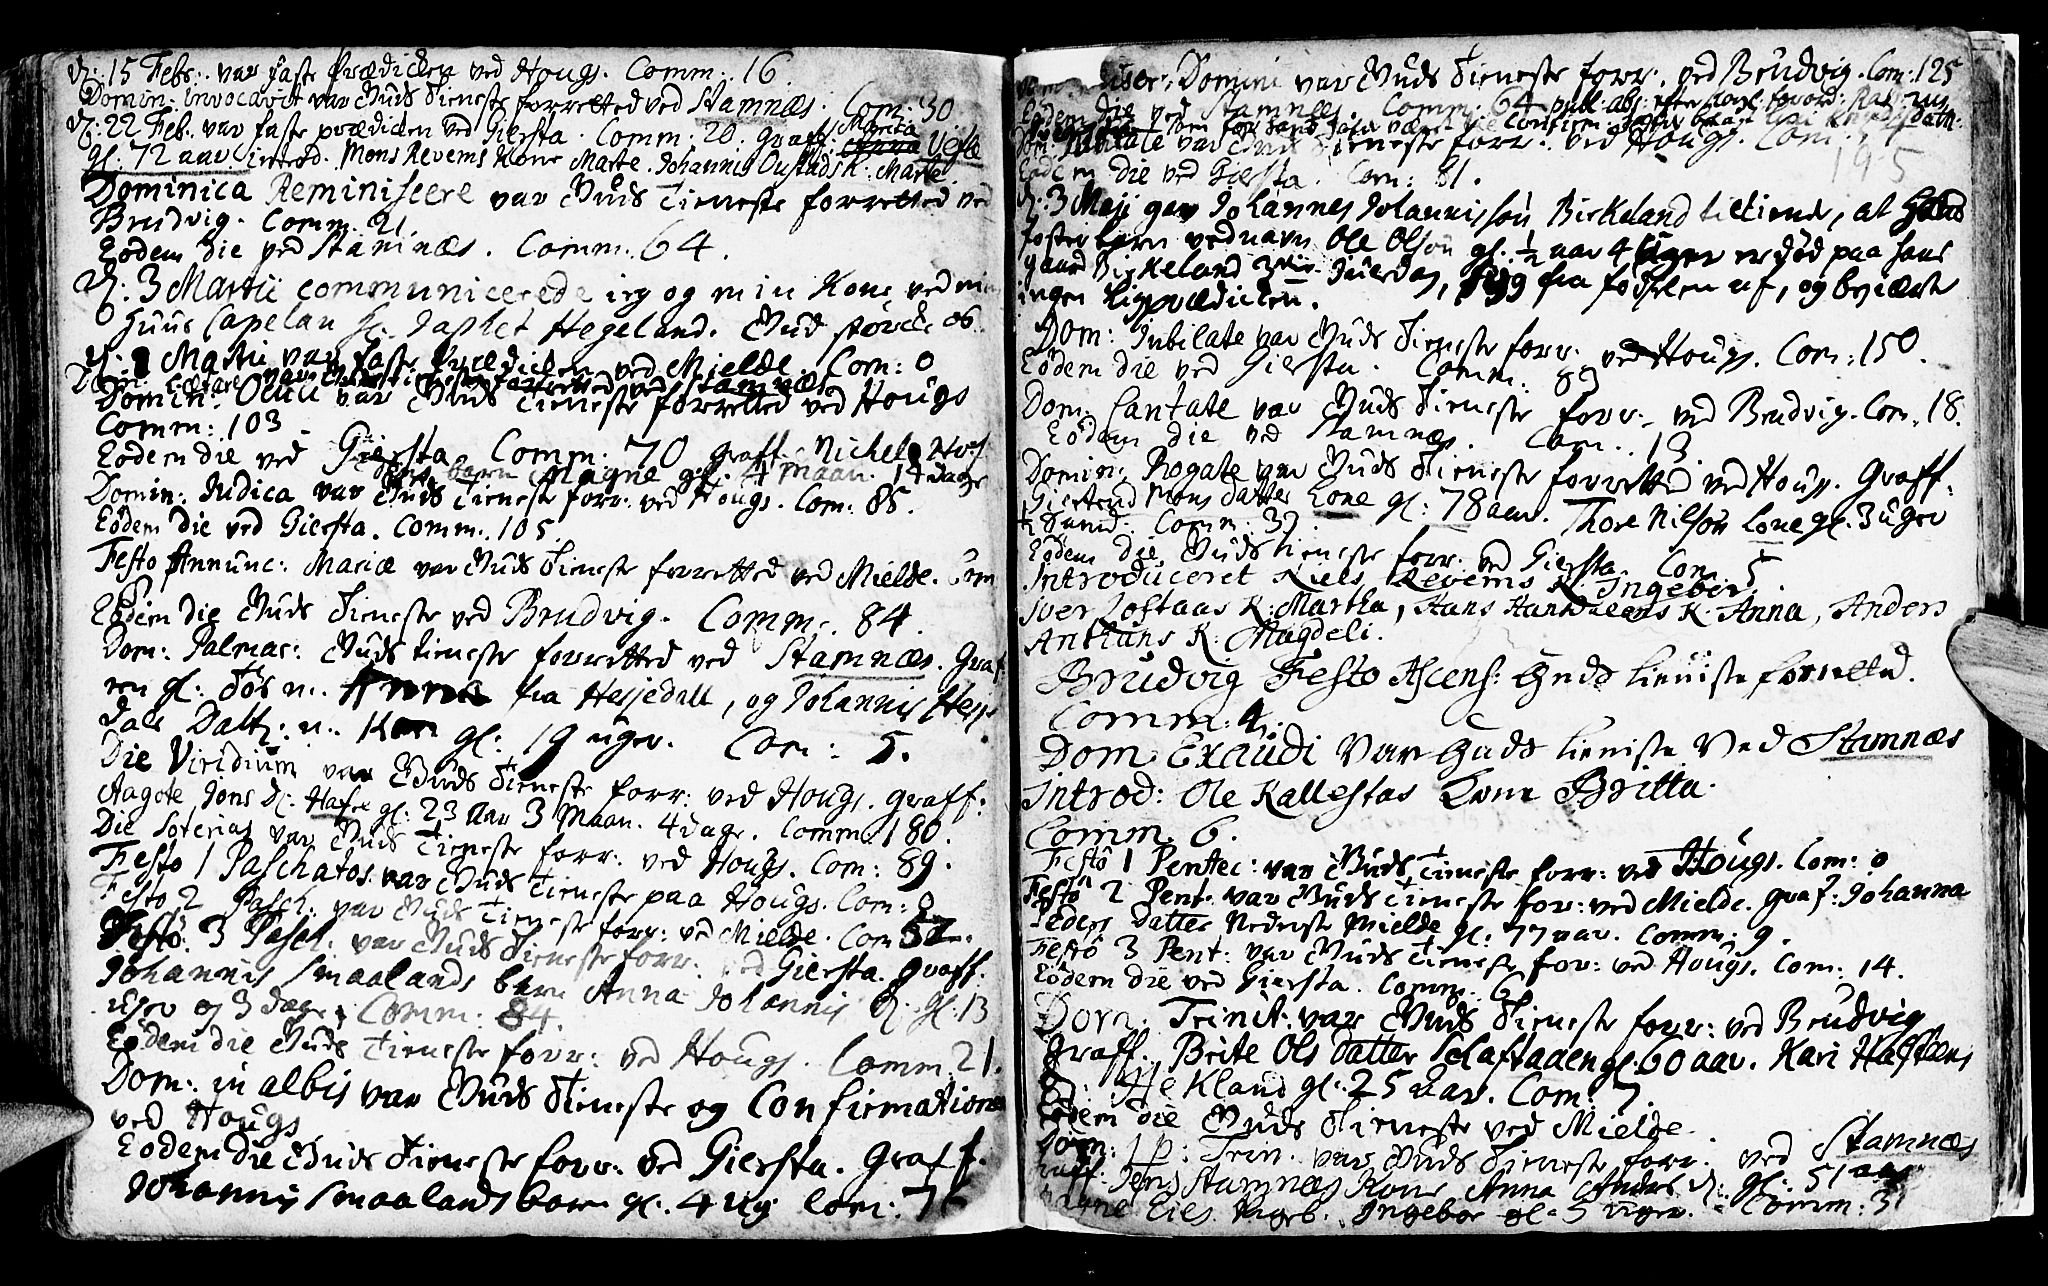 d: 15 Febr: var faste Prædicken ved Hougs. Comm: 16
Domin: Invocavit var Guds Tieneste forretted ved Stamnæs. Com: 30
d: 22 Feb: var faste prædicken ved Giersta. Comm: 20. graff: Marita Anna Vesle
gl: 72 aar introd. Mons Revems Kone Marte. Johannis Oustads K: Marte
Dominica Reminiscere var Guds Tieneste forretted ved
Brudvig. Comm: 21
Eodem die ved Stamnæs. Comm: 64.
d: 3 Martii communicerede ieg og min Kone ved min
Huus Capelan Hr: Japhet Hegeland. Gud støreke os.
d: Martii var faste Prædicken ved Mielde. Com: 0
Dom: Lætare var Guds tieneste forretted ved Stamnæs
Domin: Oculi var Guds Tieneste forretted ved Hougs
Comm: 103
Eodem die ved Giersta Comm: 70 graff: Nichel
barn Magne gl: 4 Maan. 14 dage
Domin: Judica var Guds Tieneste forr: ved Hougs. Com: 85.
Eodem die ved Giersta. Comm: 105.
Festo Annunc: Mariæ var Guds Tieneste forretted ved Mielde. Com
Eodem die Guds Tieneste ved Brudvig. Comm: 84.
Dom: Palmar: Guds tieneste forretted ved Stamnæs. Graf
ren gl: Tos n: Anna fra Hesjedall, og Johannis Hesje
dals Datt: n: Kari gl: 19 uger. Com: 5.
Die Viridium var Guds Tieneste forr: ved Hougs. graff:
Aagote Jons d: Hafre gl: 23 Aar 3 Maan. 4 dage. Comm: 180.
Die Soterias var Guds Tieneste forr: ved Hougs. Com: 89.
Festo 1 Paschatos var Guds Tieneste paa Hougs. Com: 0
Festo 2 Pasch: var Guds Tieneste forr: ved Mielde. Com
Festo 3 Pasch: var Guds Tieneste forr: ved Giersta. Graff:
Johannis Smaalands barn Anna Johannis d: gl: 13
uger og 3 dage, Comm: 84.
Eodem die Guds Tieneste forr: ved Hougs. Comm 21.
Dom: in albis var Guds Tieneste og Confirmationen
ved Hougs
Eodem die Guds Tieneste forr: ved Giersta. Graff:
Johannis Smaalands barn gl: 4 Ug Com: 7
Miser: Domini var Guds Tieneste forr: ved Brudvig. Com: 125
Eodem die ved Stamnæs. Comm: 64 publ: abs:
Dom: Jubilate var Guds Tieneste forr: ved Hougs. Com:
195
Eodem die ved Giersta. Com: 81.
d: 3 Maji gav Johannes Johannissøn Birkeland tilkiende, at Hans
foster barn ved navn Ole Olsøn gl: ½ aar 4 Uger er død paa hans
gaard Birkeland fra fødselen af, og begiært
ingen Ligprædicken.
Dom: Jubilate var Guds Tieneste forr: ved Hougs. Com: 150.
Eodem die ved Giersta. Comm: 89
Dom: Cantate var Guds Tieneste forr: ved Brudvig. Com: 18.
Eodem die ved Stamnæs. Com: 13
Domin: Rogate var Guds Tieneste forretted ved Hougs. Graff:
Giertrud Mons datter Lone gl: 78 aar. Thore Nilssøn Lone gl: 3 uger
Comm: 37.
Eodem die Guds tieneste forr: ved Giersta. Com: 5
Introduceret Niels Revems K Ingebor,
Iver Loftaas K: Martha, Hans K Anna, Anders
K: Magdeli.
Brudvig Festo Ascens: Guds tieniste forretted.
Comm: 4.
Dom Exaudi Var Guds tieniste Ved Stamnæs
Introd: Ole Kallestas Kone Britta.
Comm: 6.
Festo 1 Pentec: var Guds Tieneste forr: ved Hougs. Com: 0
Festo 2 Pent: var Guds Tieneste for: ved Mielde. graf: Johanna
Peders datter Nederste Mielde gl: 77 aar. Comm: 9.
Festo 3 Pent: var Guds Tieneste for: ved Hougs. Com: 14.
Eodem die ved Giersta. Comm: 6
Dom: Trinit: var Guds Tieneste forr: ved Brudvig
Graff: Brite Ols datter gl: 60 aar. Kari
gl: 25 Aar. Com: 7.
Eodem die Guds Tieneste ved Mielde.
Dom: 1 p: Trin: var Guds Tieneste forr: ved Stamnæs
graff: Jens Stamnæs Kone Anna Anders d: gl: 51 aar
Ingebor gl: 5 uger. Comm: 31